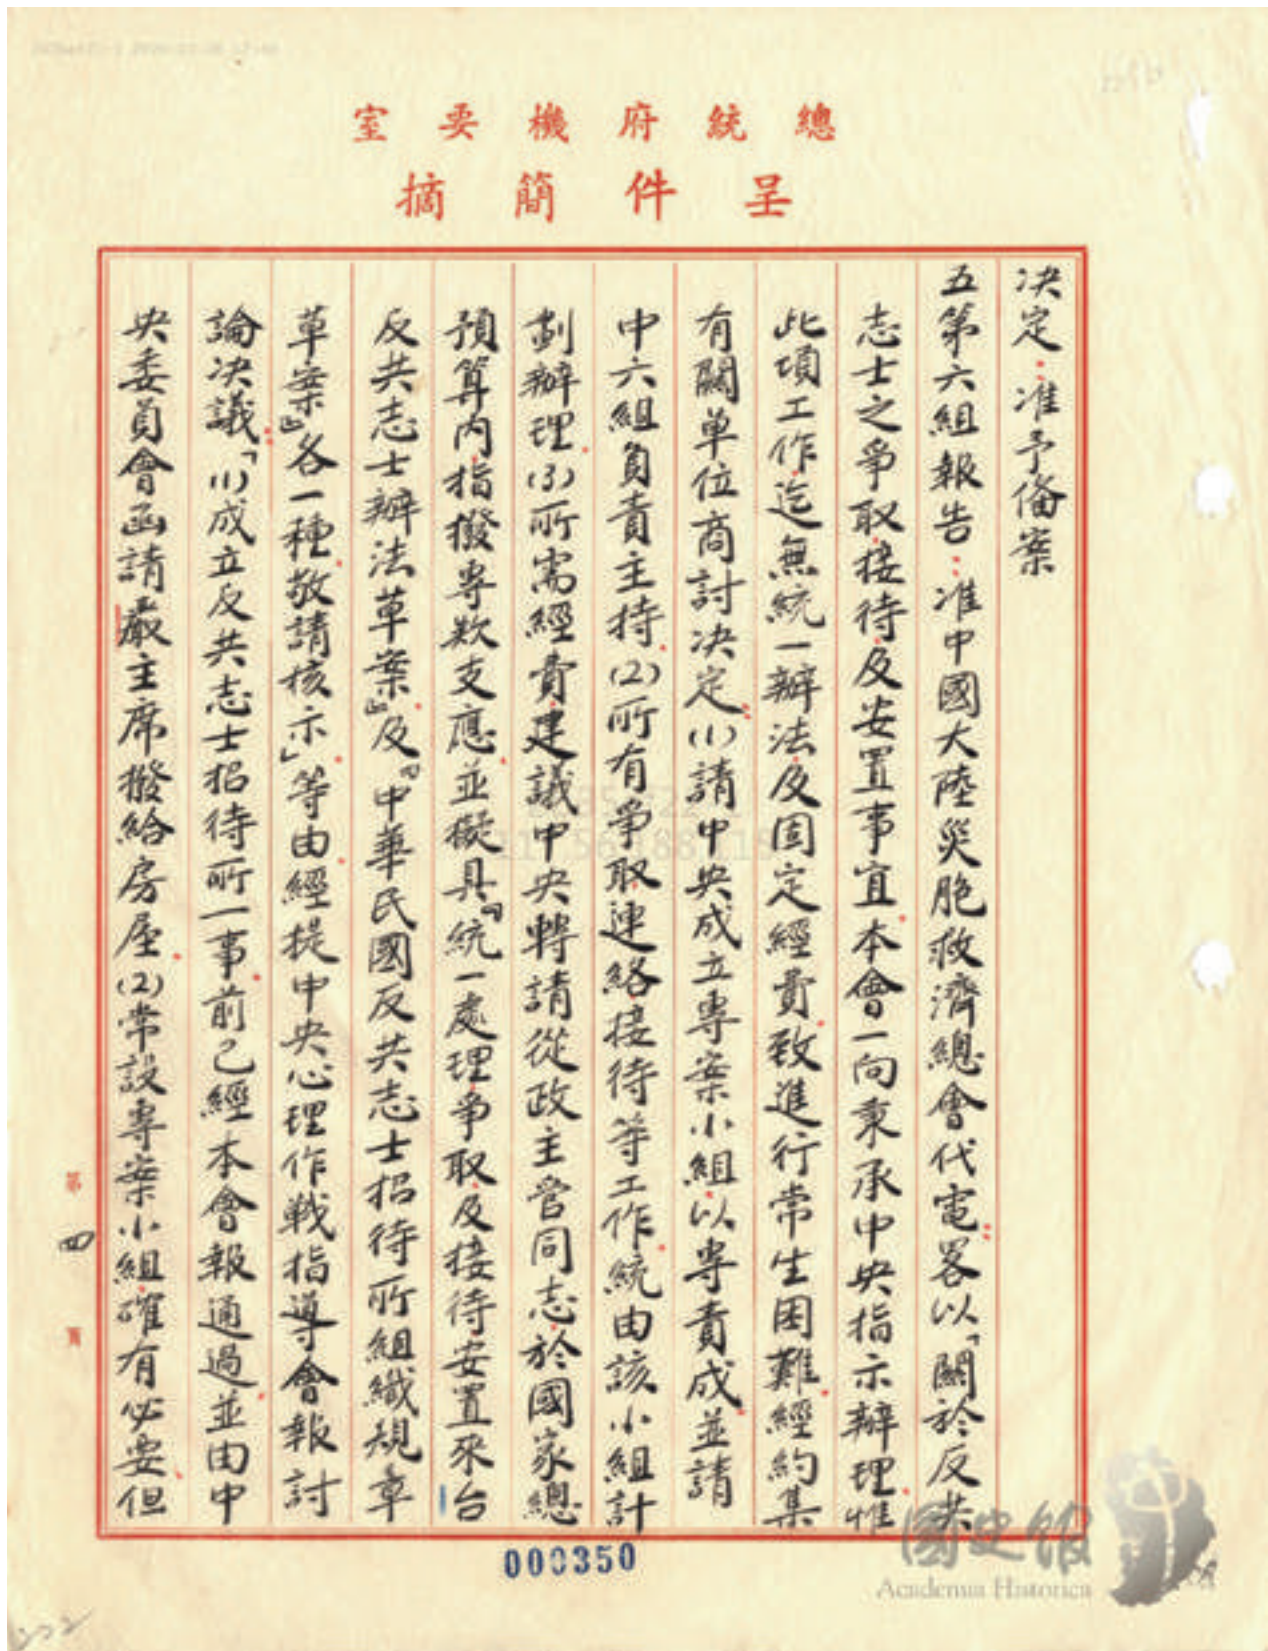 總統府機要室
呈件簡摘
決定：准予俻案
五第六組報告：准中國大陸災胞救濟總會代電畧以「關於反共
志士之爭取接待及安置事宜本會一向秉承中央指示辦理惟
此項工作迄無統一辦法及固定經費致進行常生困難經約集
有關單位商討決定：(1)請中央成立專案小組以專責成並請
中六組負責主持(2)所有爭取連絡接待等工作統由該小組計
劃辦理(3)所需經費建議中央轉請從政主管同志於國家總
預算內指撥專欵支應並擬具『統一處理爭取及接待安置來台
反共志士辦法草案』及『中華民國反共志士招待所組織規章
草案』各一種敬請核示」等由經提中央心理作戰指導會報討
論決議：「(1)成立反共志士招待所一事前已經本會報通過並由中
央委員會函請嚴主席撥給房屋(2)常設專案小組確有必要但
第四頁
000350
國史館
Academia Historica